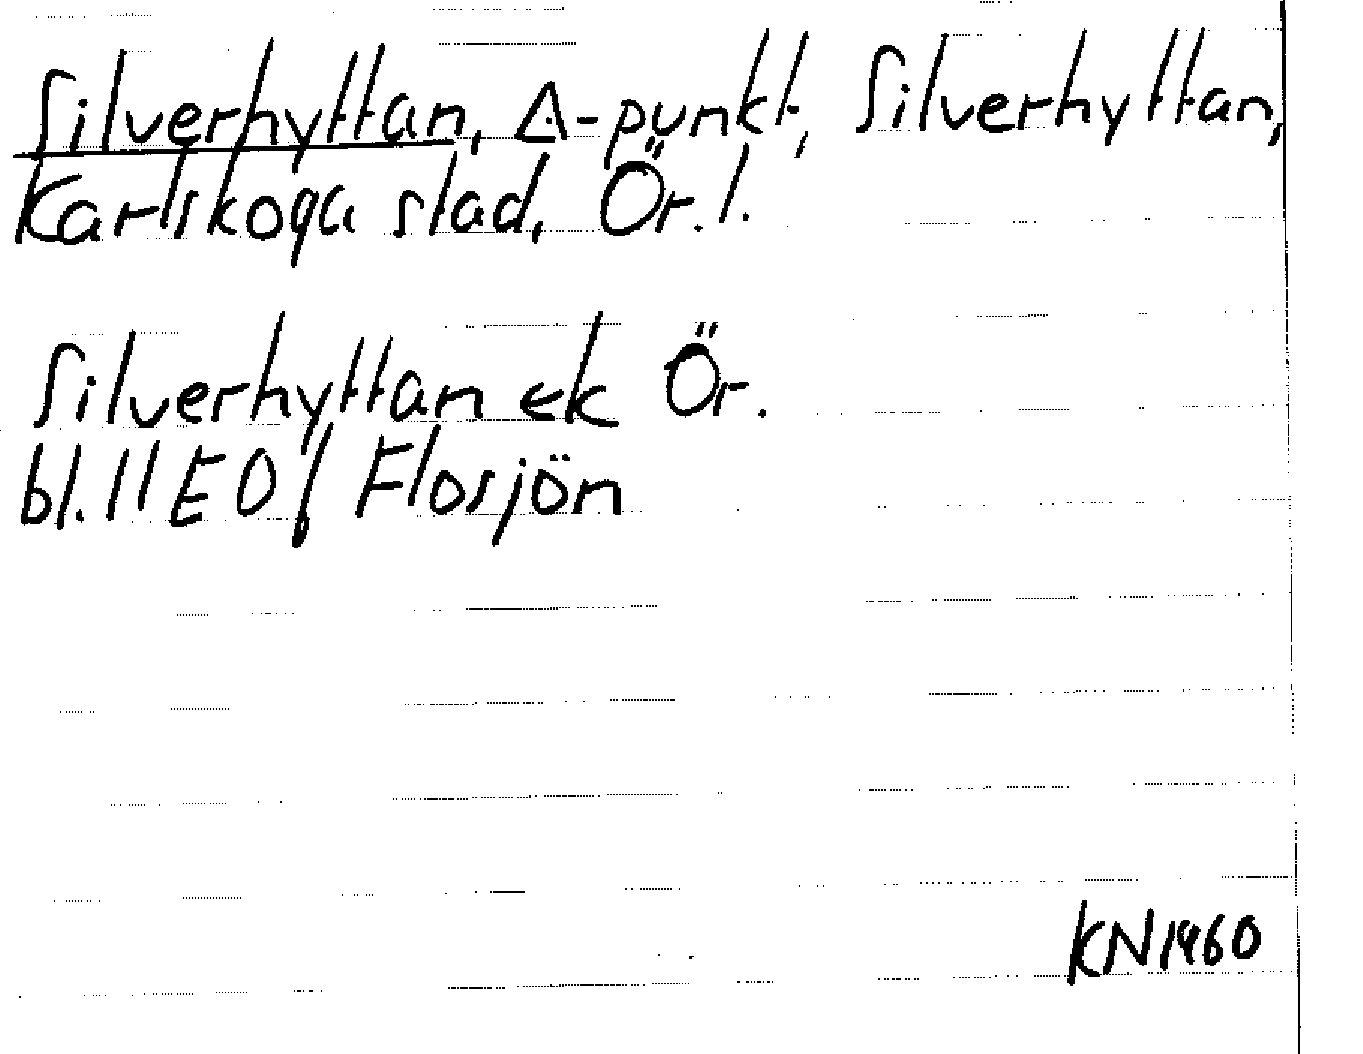 Silverhyttan, Δ-punkt, Silverhyttan,
Karlskoga stad, Ör. l.
Silverhyttan ek Ör.
bl. 11 E 0 f Flosjön
KN 1960